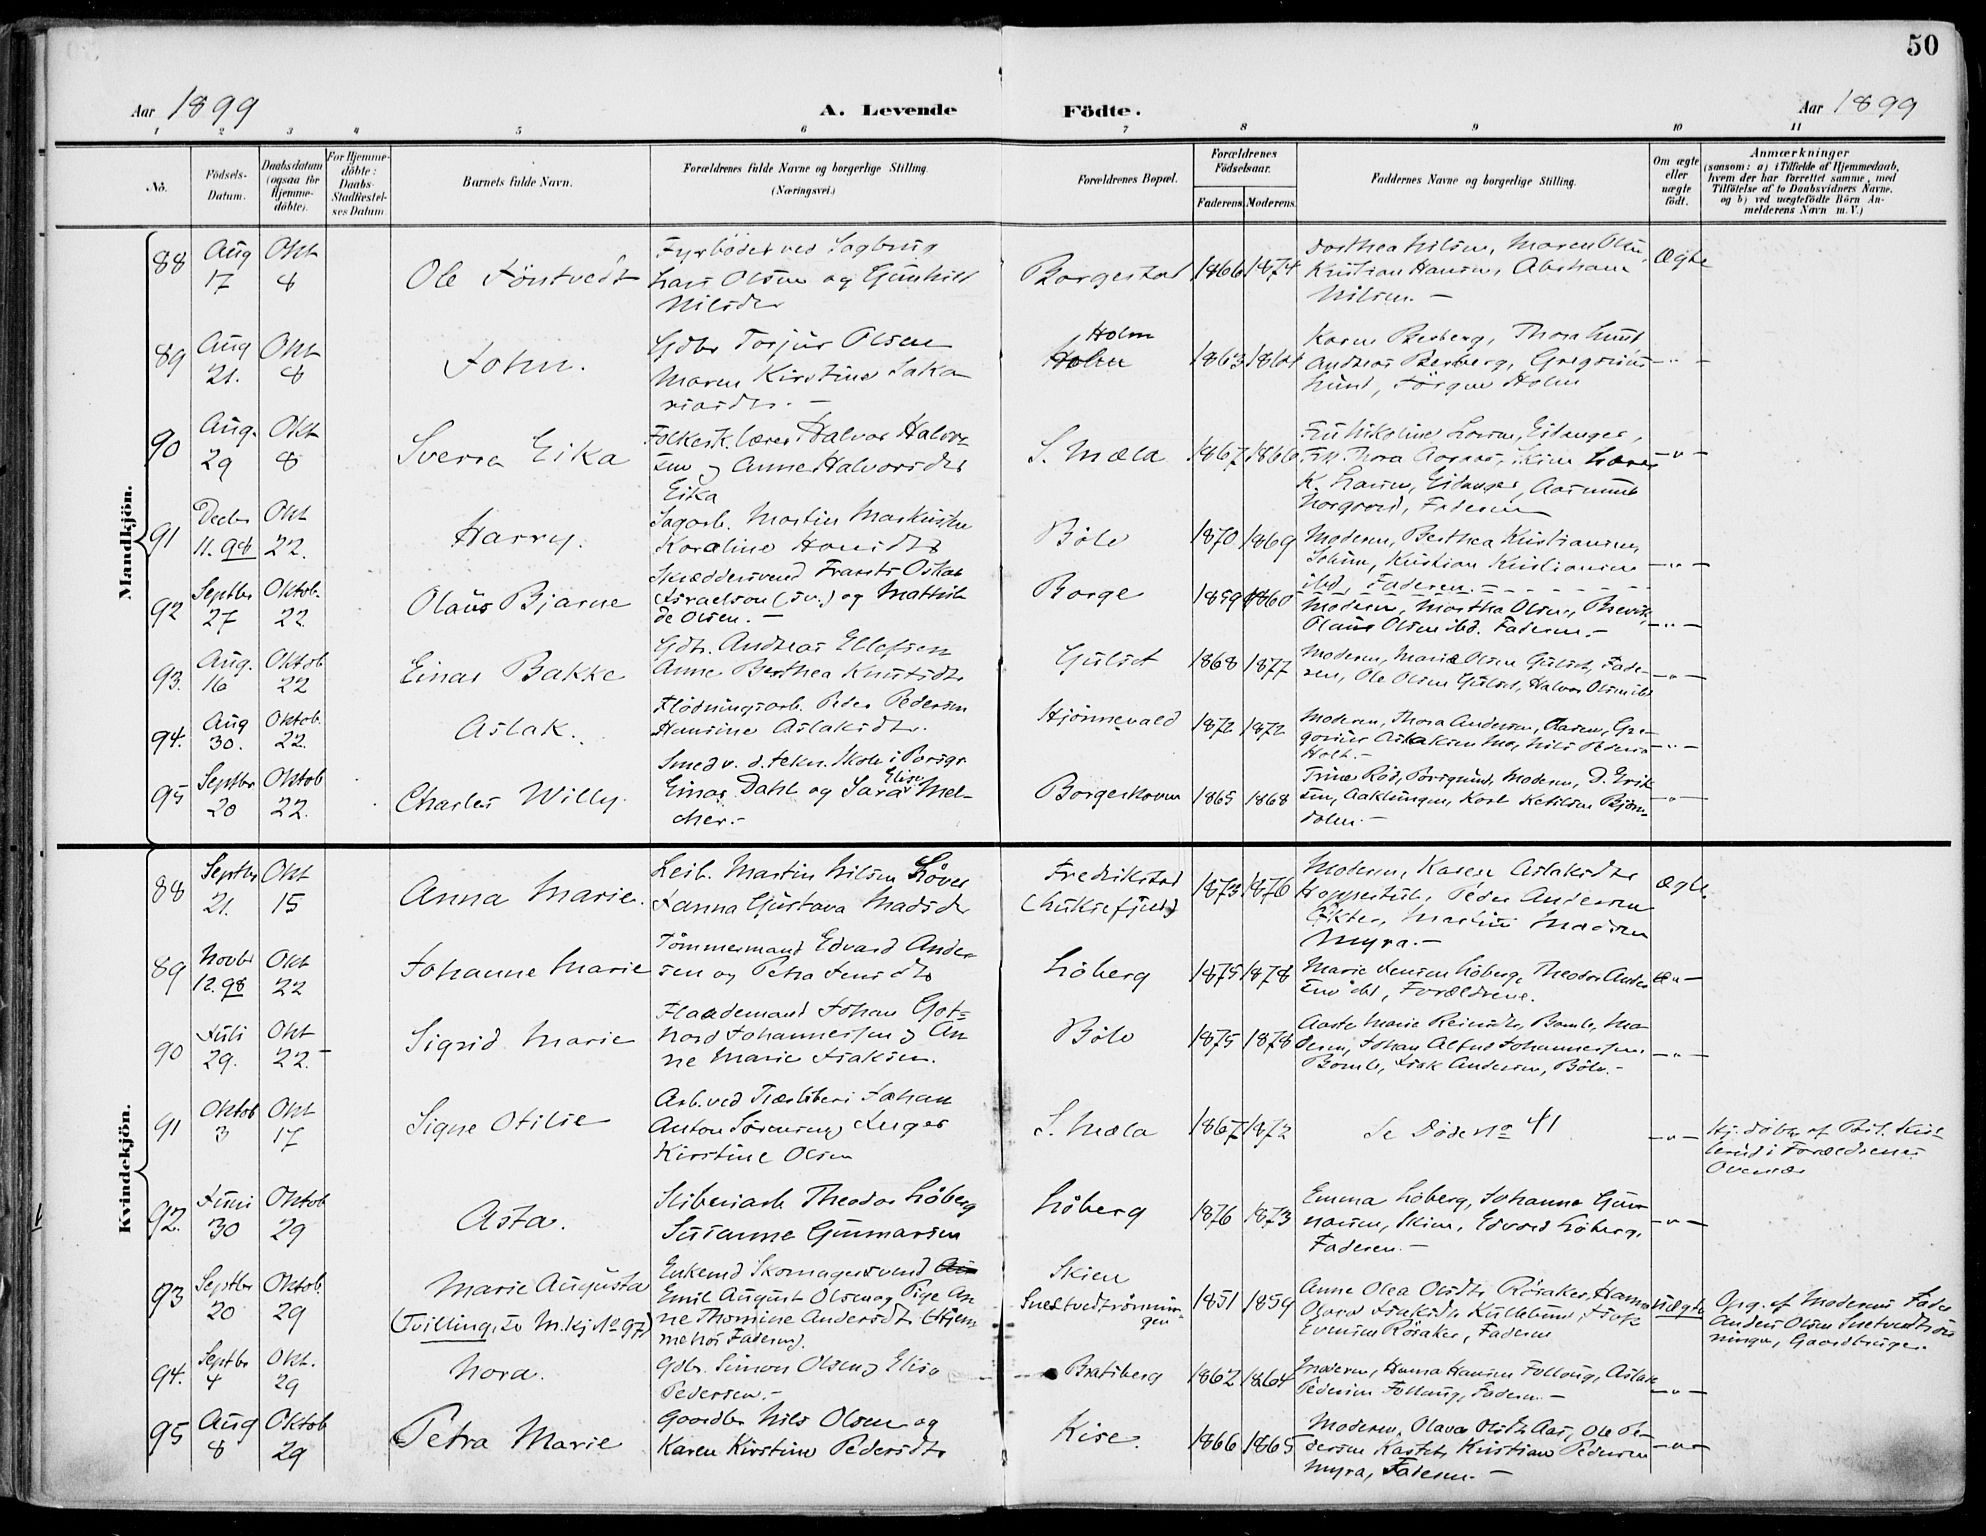 50
Aar 1899
A. Levende Födte.
Aar 1899
1 2 3 4 5 6 7 8 9 10 11
No.
Födsels-Datum.
Daabsdatum (ogsaa for Hjemmedöbte).
For Hjemmedöbte: Daabs-Stadfæstelses Datum
Barnets fulde Navn.
Forældrenes fulde Navne og borgerlige Stilling. (Næringsvei.)
Forældrenes Bopæl.
Forældrenes Födselsaar.
Faderens. Moderens.
Faddernes Navne og borgerlige Stilling.
Om ægte eller uægte födt.
Anmærkninger
(saasom: a) i Tilfælde af Hjemmedaab, hvem der har forrettet samme, med Tilföielse af to Daabsvidners Navne, og b) ved uægtefödte Börn Anmelderens Navn m. V.)
Mandkjön.
88 Aug 17 Okt 8 Ole Töntvedt
Fyrböder ved Sagbrug
Lars Olsen og Gunhild
Nilsdtr
Borgestad 1866 1874
Dorthea Nilsen, Maren Olsen,
Kristian Hansen, Abraham
Nilsen. —
Ægte
89 Aug 21. Okt 8 John.
Gdbr Torjus Olsen
Maren Kirstine Saka
riasdtr. —
Holm
Holm 1863 1864
Karen Berberg, Thora Lund
Andreas Berberg, Gregorius
Lund, Jörgen Holm
— " —
90 Aug. 29 Okt 8 Sverre Eika
Folkesk.lærer Halvor Halvor
sen og Anne Halvorsdtr
Eika
S. Mæla 1867 1866
Fru Nikoline Larsen, Eidanger,
Frk. Thora Aasnæs, Skien Lærer
K. Larsen, Eidanger, Aasmund
Norgaard, Faderen
— " —
91 Decbr 11. 98 Okt 22. Harry.
Sagarb. Martin Markussen
Karoline Hansdtr
Böle 1870 1869
Moderen, Berthea Kristiansen,
Kristian Kristiansen
ibd, Faderen. —
— " —
92 Septbr 27 Oktob. 22 Olaus Bjarne
Skræddersvend Frants Oskar
Israelson (sv.) og Mathil
de Olsen. —
Borge 1859 1860
Moderen, Martha Olsen, Brevik,
Olaus Olsen ibd. Faderen. —
— " —
93. Aug. 16 Oktob 22 Einar Bakke
Gdbr. Andreas Ellefsen
Anne Berthea Knutsdtr
Gulset 1868 1877
Moderen, Marie Olsen Gulset, Fade-
ren, Ole Olsen Gulset, Halvor Olsen ibd
— " —
94. Aug 30. Oktob. 22. Aslak.
Flödningsarb. Peder Pedersen
Hansine Aslaksdtr.
Hjönnevald 1872 1872
Moderen, Thora Andersen, Gre-
gorius Aslaksen Nils Pedersen
Holt. —
— " —
95 Septbr 20 Oktob 22. Charles Willy.
Smed v. d. tekn. Skole i Porsgr.
Einar Dahl og Sara Elise Mel-
cher. —
Borgeskoven 1865 1868
Trine Röd, Porsgrund, Moderen, D. Erik
sen, Aaklungen, Karl Ketilsen Bjön-
dalen. —
— " —
Kvindekjön.
88 Septbr 21. Okt 15 Anna Marie.
Leil. Martin Nilsen Löver
Janna Gustava Madsdtr
Fredrikstad
1873 1876
Moderen, Karen Aslaksdtr
Hoppestul, Peder Andersen
Öikter, Martin Madsen
Myra. —
Ægte.
89 Novbr 12. 98 Okt 22 Johanne Marie
Tömmermand Edvard Ander
sen og Petra Jensdtr
Löberg 1875 1878
Marie Jensen Löberg, Theodor Ander
sen ibd, Forældrene.
— " —
90 Juli 29. Okt 22. Sigrid Marie
Flaademand Johan Got-
hard Johannessen og An
ne Marie Isaksen.
Böle 1875 1878
Aaste Marie Reiersdtr, Bamle, Mo
deren, Johan Alfred Johannessen
Bamle, Isak Andersen, Böle. —
— " —
91 Oktob 3 Okt 17 Signe Otilie
Arb. ved Træsliberi Johan
Anton Sörensen og Inger
Kirstine Olsen
S. Mæla 1867 1872
Se Döde No 41
— " —
Hj. döbt af
i Forældrenes
Overvær
92. Juni 30 Oktob 29 Asta.
Sliberiarb Theodor Löberg
Susanne Gunnarsen
Löberg 1876 1873
Emma Löberg, Johanne Gun
narsen, Skien, Edvard Löberg,
Faderen. —
— " —
93 Septbr 20 Oktob. 29 Marie Augusta
(Tvilling, se M.kj No 97)
Enkemd Skomagersvend
Emil August Olsen og Pige An
ne Thomine Andersdtr (Hjem
me hos Faderen).
Skien
Snedtvedtrönnin-
gen 1851 1859
Anne Olea Olsdtr Röraker, Hanna
Olava Isaksdtr Kullebund, Isak
Evensen Röraker, Faderen
Uægte
Opg. af Moderens Fader
Anders Olsen Snetvedtrön
ningen, Gaardbruger.
94. Septbr 4 Okt. 29 Nora.
Gdbr. Simon Olsen og Elise
Pedersen. —
Bratsberg 1862 1864
Moderen, Hanna Hansen Follaug, Aslak
Pedersen Follaug, Faderen —
— " —
95 Aug 8 Oktob 29 Petra Marie
Gaardbr Nils Olsen og
Karen Kirstine Pedersdtr
Kise. 1866 1865
Moderen, Olava Olsdtr Aas, Ole Pe-
dersen Kastet, Kristian Pedersen
Myra, Faderen. —
— " —